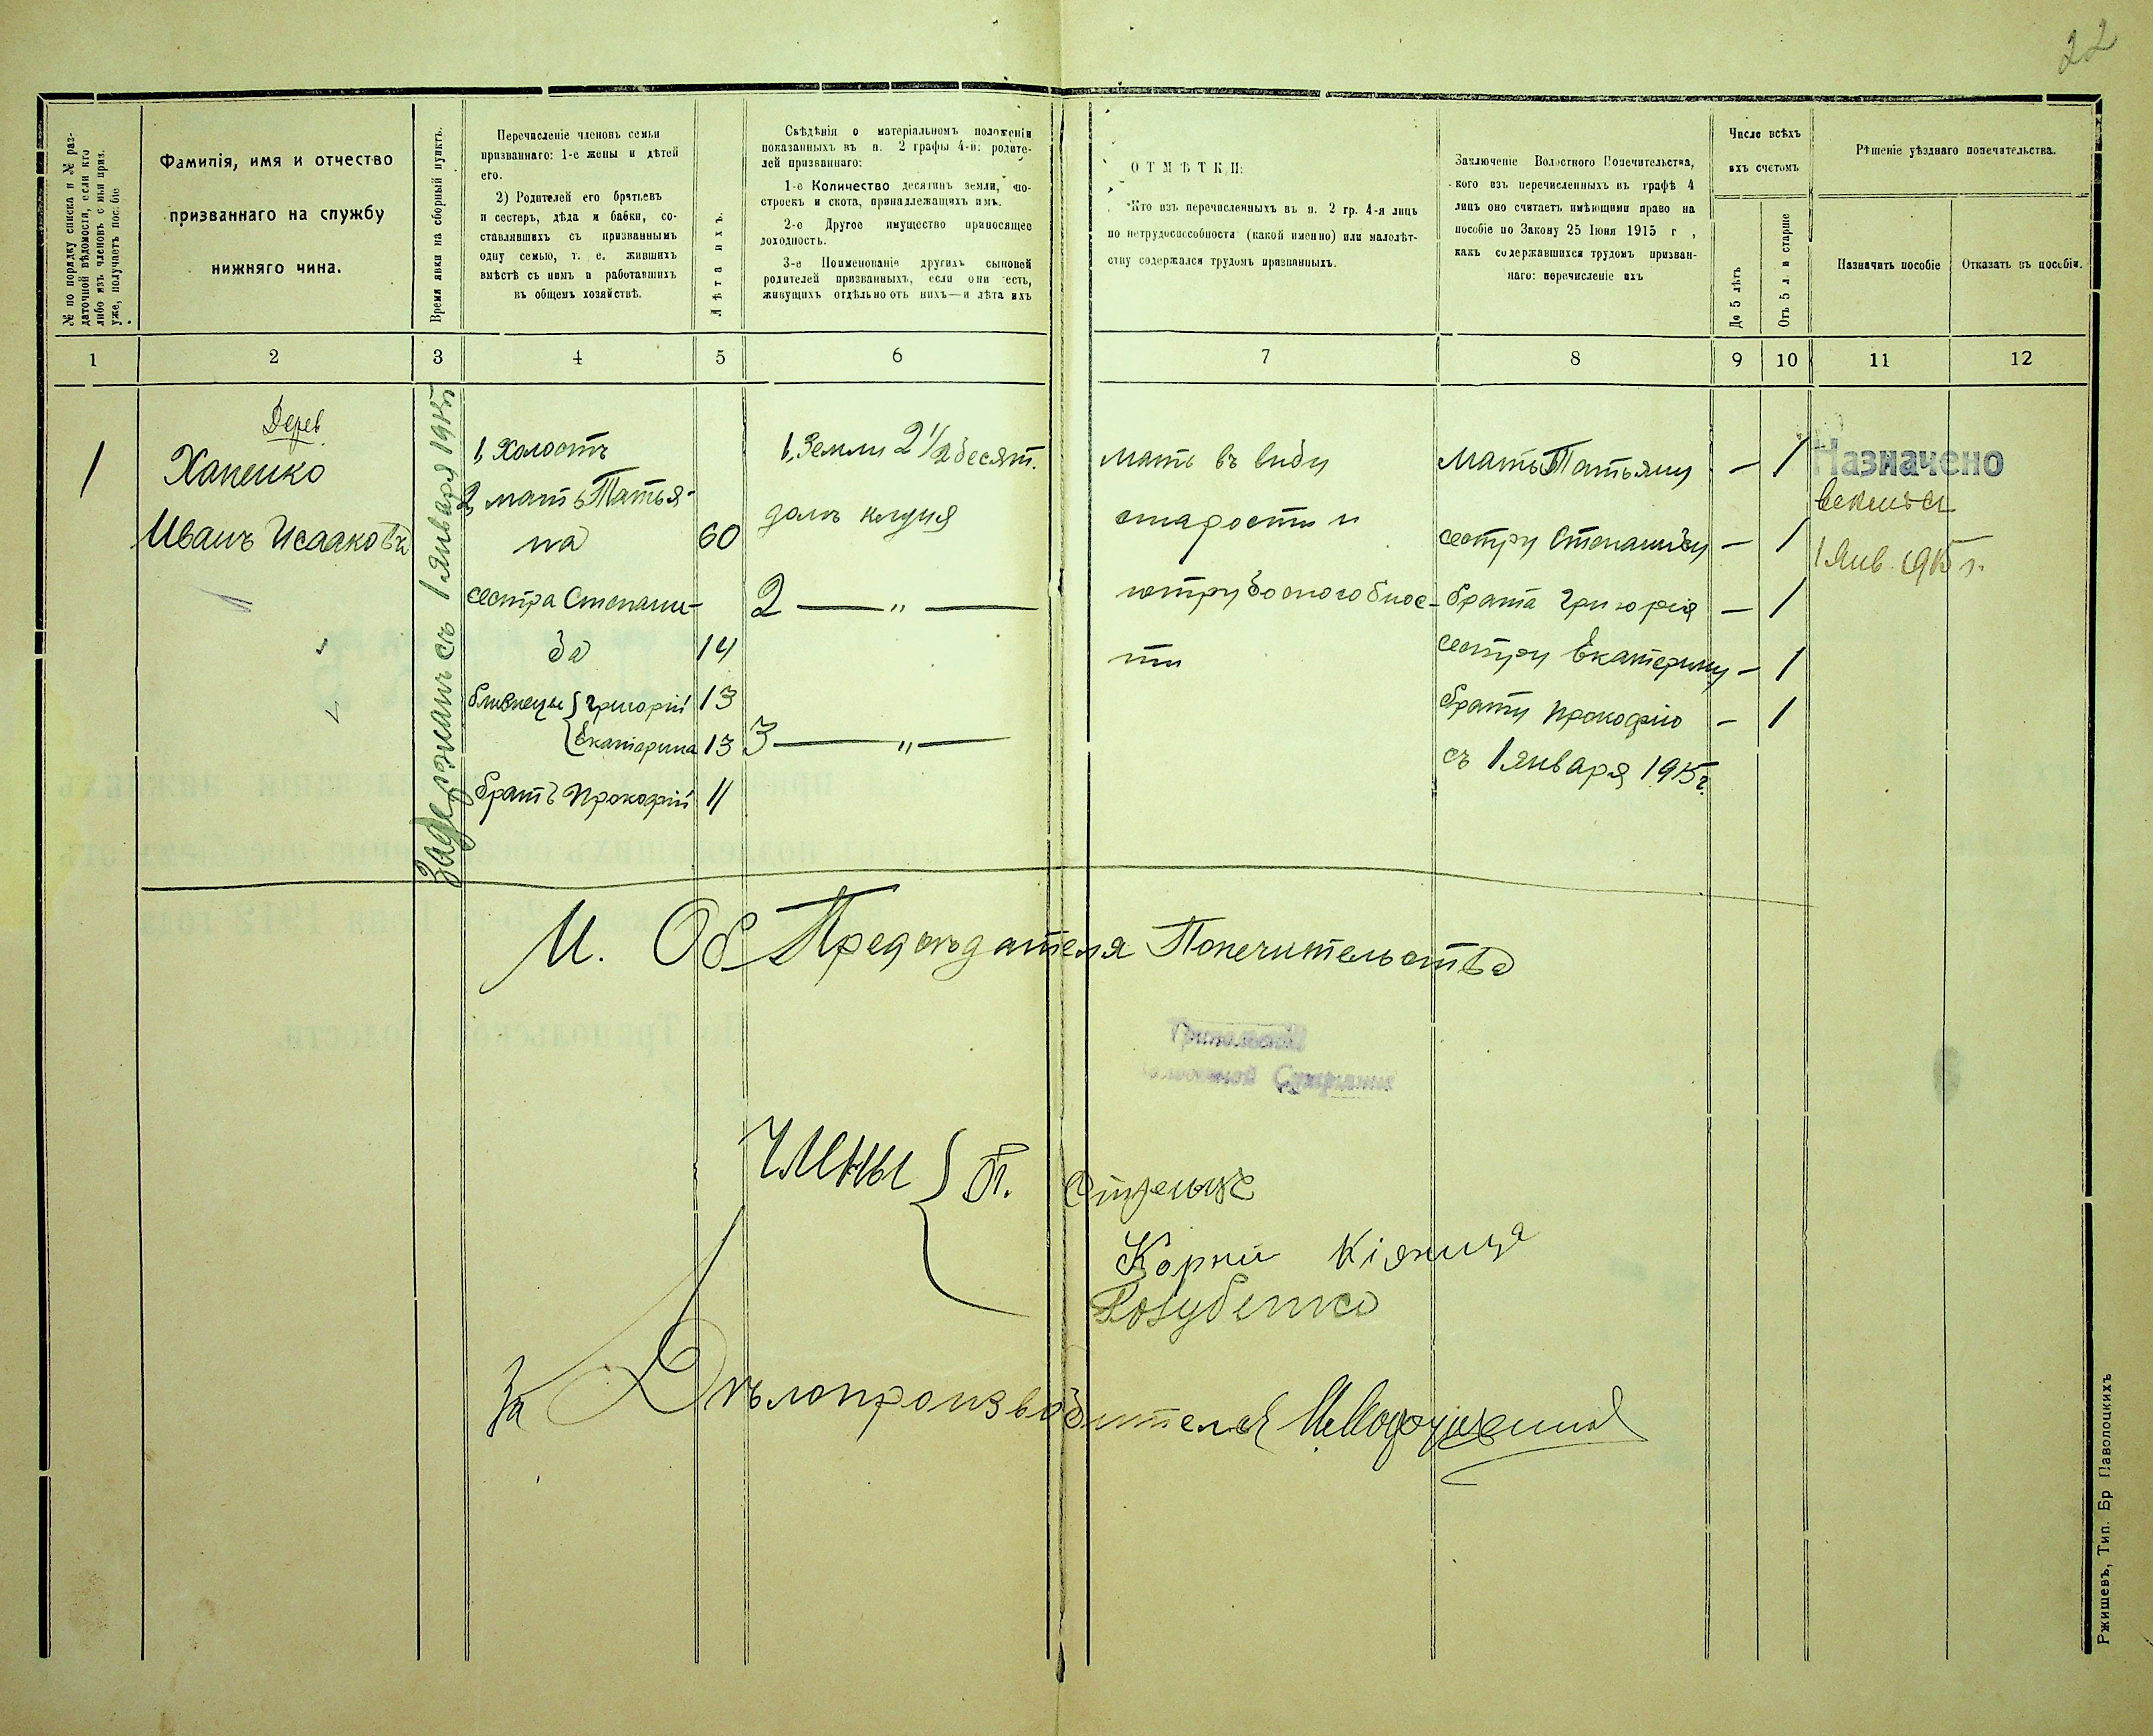 22
№ по порядку списка и № раз-
даточной вѣдомости, если кто
либо изъ членовъ с мьи приз.
уже, получаетъ пос біе
Фамилія, имя и отчество
призваннаго на службу
нижняго чина.
Время явки на сборный пунктъ.
Перечисленіе членовъ семьи
призваннаго: 1-е жены и дѣтей
его.
2) Родителей его братьевъ
и сестеръ, дѣда и бабки, со-
ставлявшихъ съ призваннымъ
одну семью, т. е. жившихъ
вмѣстѣ съ нимъ и работавшихъ
въ общемъ хозяйствѣ.
Лѣта ихъ.
Свѣдѣнія о матеріальномъ положеніи
показанныхъ въ п. 2 графы 4-й; родите-
лей призваннаго:
1-е Количество десятинъ земли, по-
строекъ и скота, принадлежащихъ имъ.
2-е Другое имущество приносящее
доходность.
3-е Поименованіе другихъ сыновей
родителей призванныхъ, если они есть,
живущихъ отдѣльно отъ нихъ—и лѣта ихъ
ОТМѢТКИ:
Кто изъ перечисленныхъ въ п. 2 гр. 4-я лицъ
по нетрудоспособности (какой именно) или малолѣт-
ству содержался трудомъ призванныхъ.
Заключеніе Волостного Попечительства,
кого изъ перечисленныхъ въ графѣ 4
лицъ оно считаетъ имѣющими право на
пособіе по Закону 25 Іюня 1915 г ,
какъ содержавшихся трудомъ призван-
наго: перечисленіе ихъ
Число всѣхъ
ихъ счетомъ
До 5 лѣтъ
Отъ 5 л. и старше
Рѣшеніе уѣзднаго попечительства.
Назначить пособіе
Отказать въ пособіи.
1 2 3 4 5 6 7 8 9 10 11 12
Дерев
1
Ханенко
Иванъ Исааковъ
Задержанъ съ 1 Января 1915
1, Холостъ
2 мать Татья-
на 60
сестра Степани-
да 14
близнецы { Григорій 13
Екатерина 13
братъ Прокофій 11
1, Земли 2 1/2 десят.
домъ клуня
2 — „ —
3 — „ —
мать въ виду
старости и
нетрудоспособнос-
ти
Мать Татьяну — 1
сестру Степаниду — 1
брата Григорія — 1
сестру Екатерину — 1
брату Прокофію — 1
съ 1 января 1915 г.
Назначено
1 Янв. 1915 г.
И. Об. Предсѣдателя Попечительства
Члены { П.
Корній Кіяница
Голубенко
За Дѣлопроизводителя
Ржищевъ, Тип. Бр Паволоцкихъ